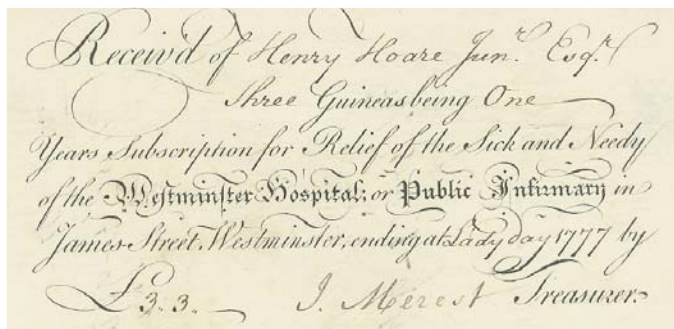 Receiv'd of Henry Hoare Junr. Esqr.
Three Guineas being One
Years Subscription for Relief of the Sick and Needy
of the Westminster Hospital; or Public Infirmary in
James Street, Westminster, ending at Lady day 1777 by
£3.3. J. Merest Treasurer.